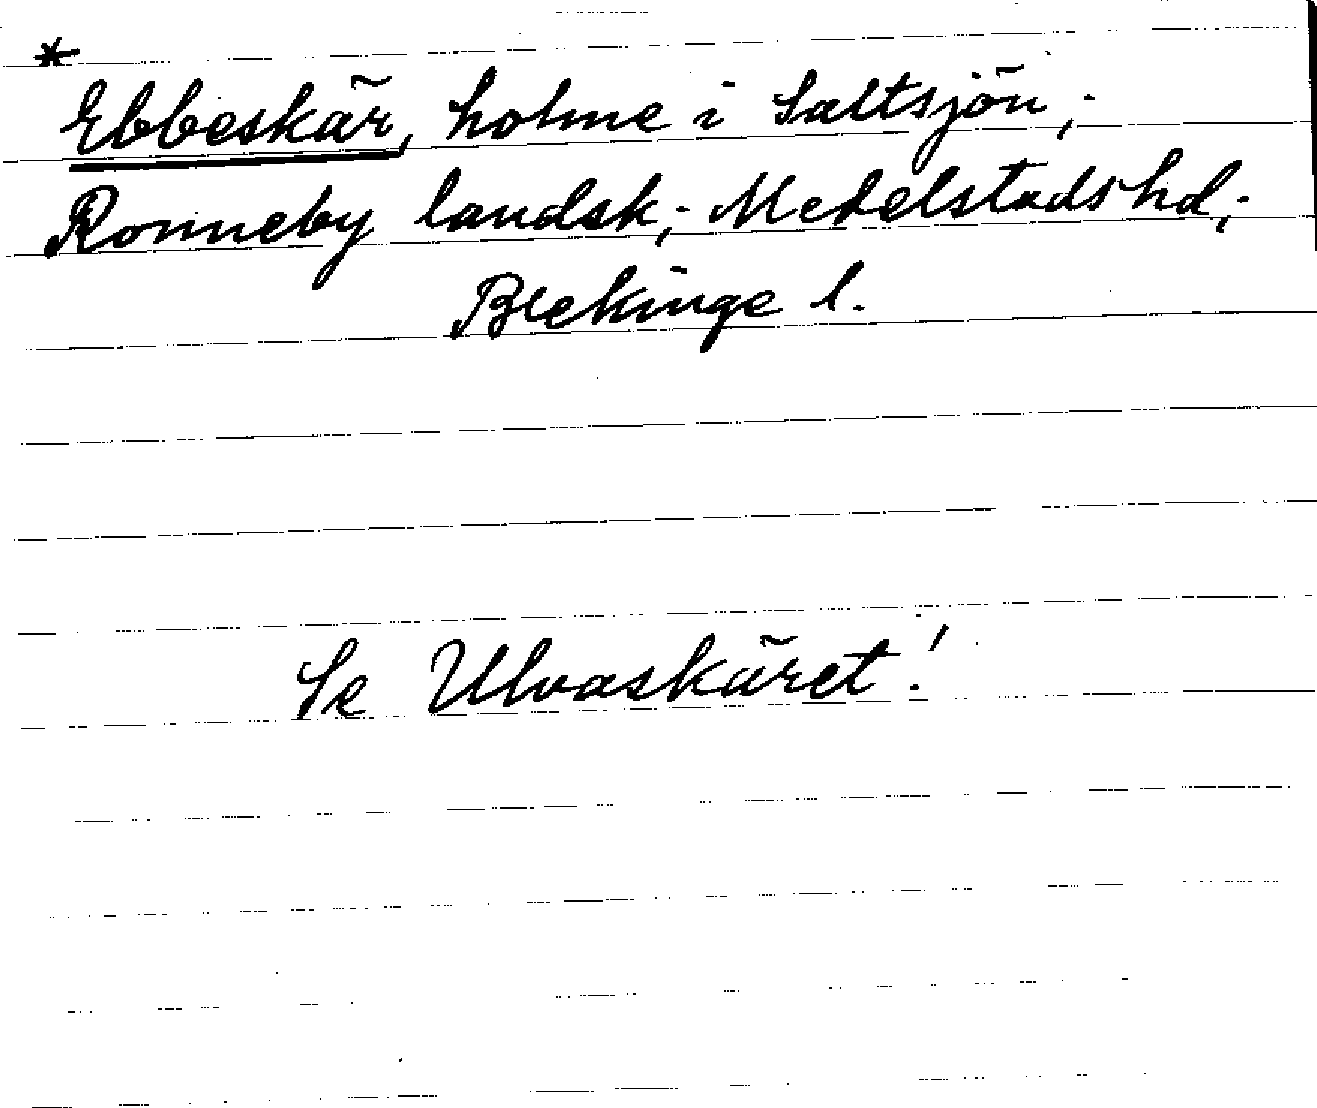 *
Ebbeskär, holme i Saltsjön,-
Ronneby landsk,- Medelstads hd,-
Blekinge l.
Se Ulvaskäret!